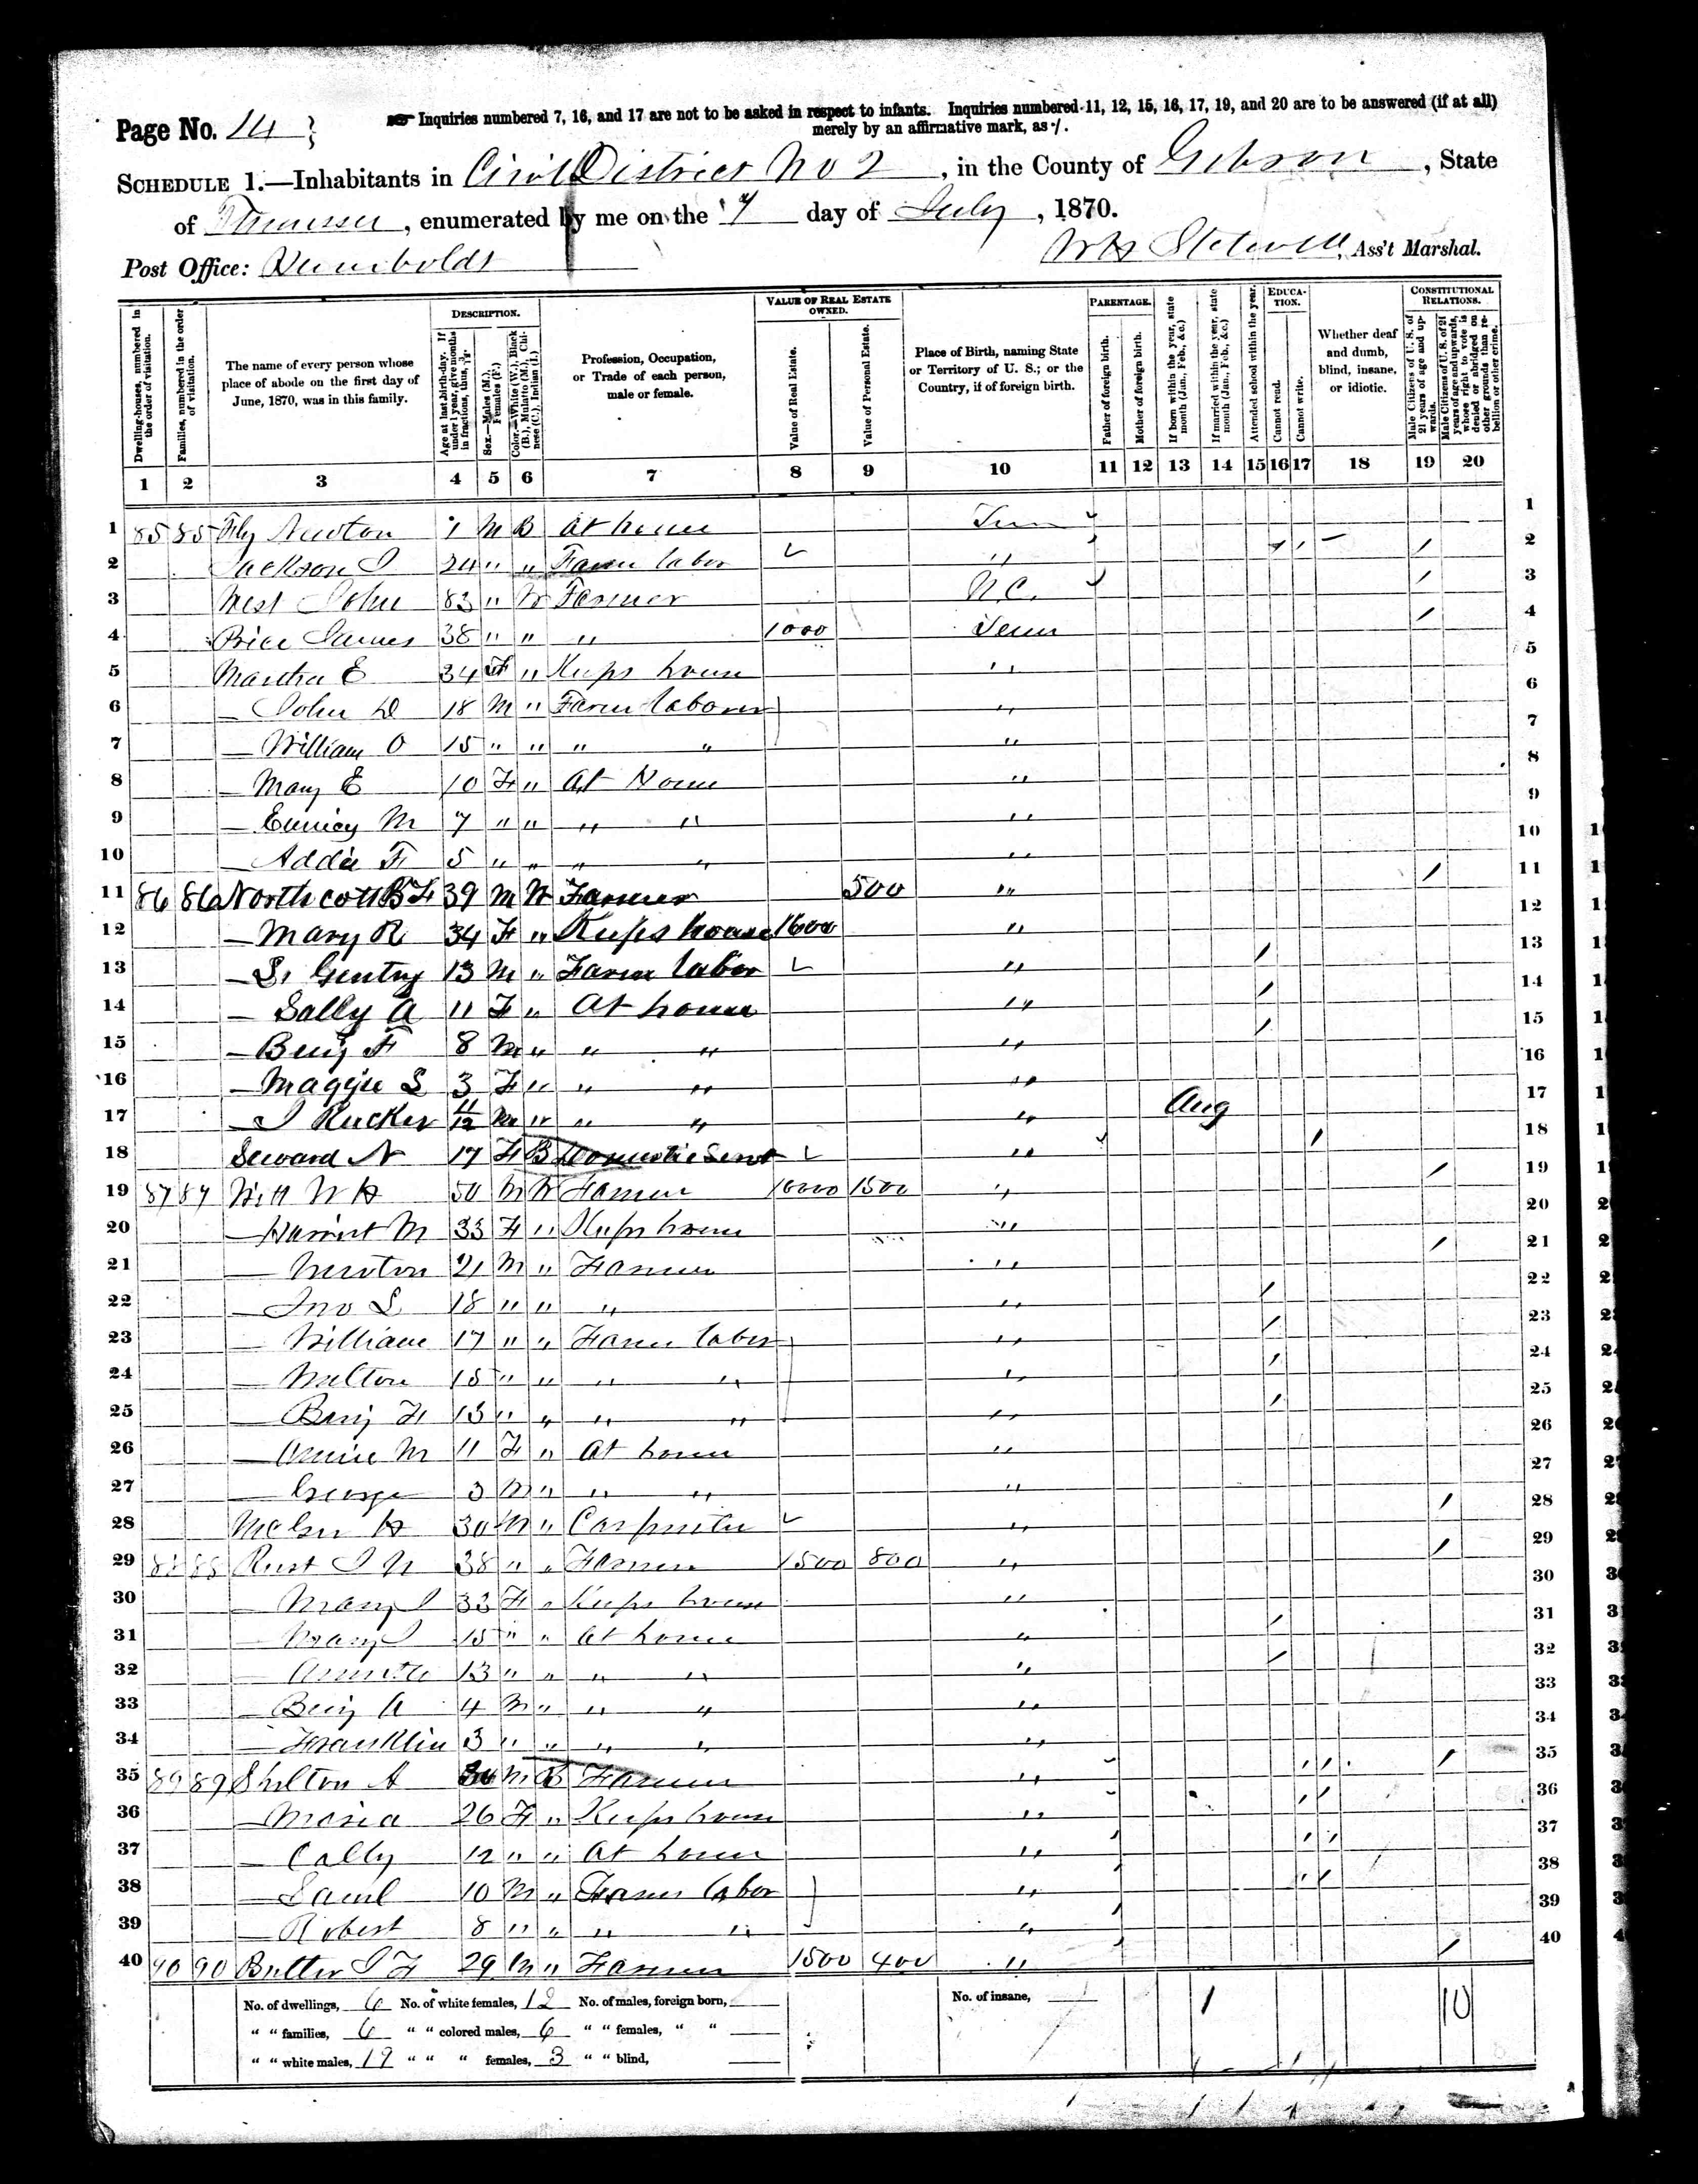 Page No. 14
Inquiries numbered 7, 16, and 17 are not to be asked in respect to infants. Inquiries numbered 11, 12, 15, 16, 17, 19, and 20 are to be answered (if at all)
merely by an affirmative mark, as /.
SCHEDULE 1.—Inhabitants in Civil District No 2, in the County of Gibson, State
of Tennessee, enumerated by me on the 7 day of July, 1870.
Post Office: Humboldt
Ass't Marshal.
Dwelling-houses, numbered in the order of visitation.
Families, numbered in the order of visitation.
The name of every person whose place of abode on the first day of June, 1870, was in this family.
DESCRIPTION.
Age at last birth-day. If under 1 year, give months in fractions, thus, 3/12.
Sex.—Males (M.), Females (F.)
Color.—White (W.), Black (B.), Mulatto (M.), Chinese (C.), Indian (I.)
Profession, Occupation, or Trade of each person, male or female.
VALUE OF REAL ESTATE OWNED.
Value of Real Estate.
Value of Personal Estate.
Place of Birth, naming State or Territory of U. S.; or the Country, if of foreign birth.
PARENTAGE.
Father of foreign birth.
Mother of foreign birth.
If born within the year, state month (Jan., Feb., &c.)
If married within the year, state month (Jan., Feb., &c.)
Attended school within the year.
EDUCATION.
Cannot read.
Cannot write.
Whether deaf and dumb, blind, insane, or idiotic.
CONSTITUTIONAL RELATIONS.
Male Citizens of U. S. of 21 years of age and upwards.
Male Citizens of U. S. of 21 years of age and upwards, whose right to vote is denied or abridged on other grounds than rebellion or other crime.
1 2 3 4 5 6 7 8 9 10 11 12 13 14 15 16 17 18 19 20
1 85 85 Fly Newton 1 M B At home Tenn 1
2 Jackson J 24 " " Farm labor " 2
3 West John 83 " W Farmer N.C. 3
4 Price James 38 " " " 1000 Tenn 4
5 Martha E 34 F " Keeps house " 5
6 — John D 18 M " Farm laborer " 6
7 — William O 15 " " " " " 7
8 — Mary E 10 F " At Home " 8
9 — Eunicy M 7 " " " " " 9
10 — Addie F 5 " " " " " 10
11 86 86 Northcott B F 39 M W Farmer 500 " 11
12 — Mary R 34 F " Keeps house 1600 " 12
13 — S. Gentry 13 M " Farm labor " 13
14 — Sally A 11 F " At home " 14
15 — Benj F 8 M " " " " 15
16 — Maggie L 3 F " " " " 16
17 — J Rucker 11/12 M " " " " Aug 17
18 Seward N 17 F B Domestic Servt " 18
19 87 87 Witt W H 50 M W Farmer 10000 1500 " 19
20 — Harriet M 33 F " Keeps house " 20
21 — Newton 21 M " Farmer " 21
22 — Jno L 18 " " " " 22
23 — William 17 " " Farm labor " 23
24 — Milton 15 " " " " " 24
25 — Benj F 13 " " " " " 25
26 — Annie M 11 F " At home " 26
27 — George 3 M " " " " 27
28 H 30 M " Carpenter " 28
29 88 88 Rust J N 38 " " Farmer 1500 800 " 29
30 — Mary J 33 F " Keeps house " 30
31 — Mary J 15 " " At home " 31
32 — 13 " " " " " 32
33 — Benj A 4 M " " " " 33
34 — Franklin 3 " " " " " 34
35 89 89 Shelton A M B Farmer " 35
36 — Maria 26 F " Keeps house " 36
37 — Cally 12 " " At home " 37
38 — Saml 10 M " Farm labor " 38
39 — Robert 8 " " " " " 39
40 90 90 Butler J F 29 M " Farmer 1500 400 " 40
No. of dwellings, 6 No. of white females, 12 No. of males, foreign born, No. of insane, 1 10
" " families, 6 " " colored males, 6 " " females, " "
" " white males, 19 " " " females, 3 " " blind,